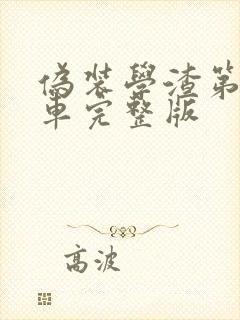 偽裝學渣第
車完整版
高波